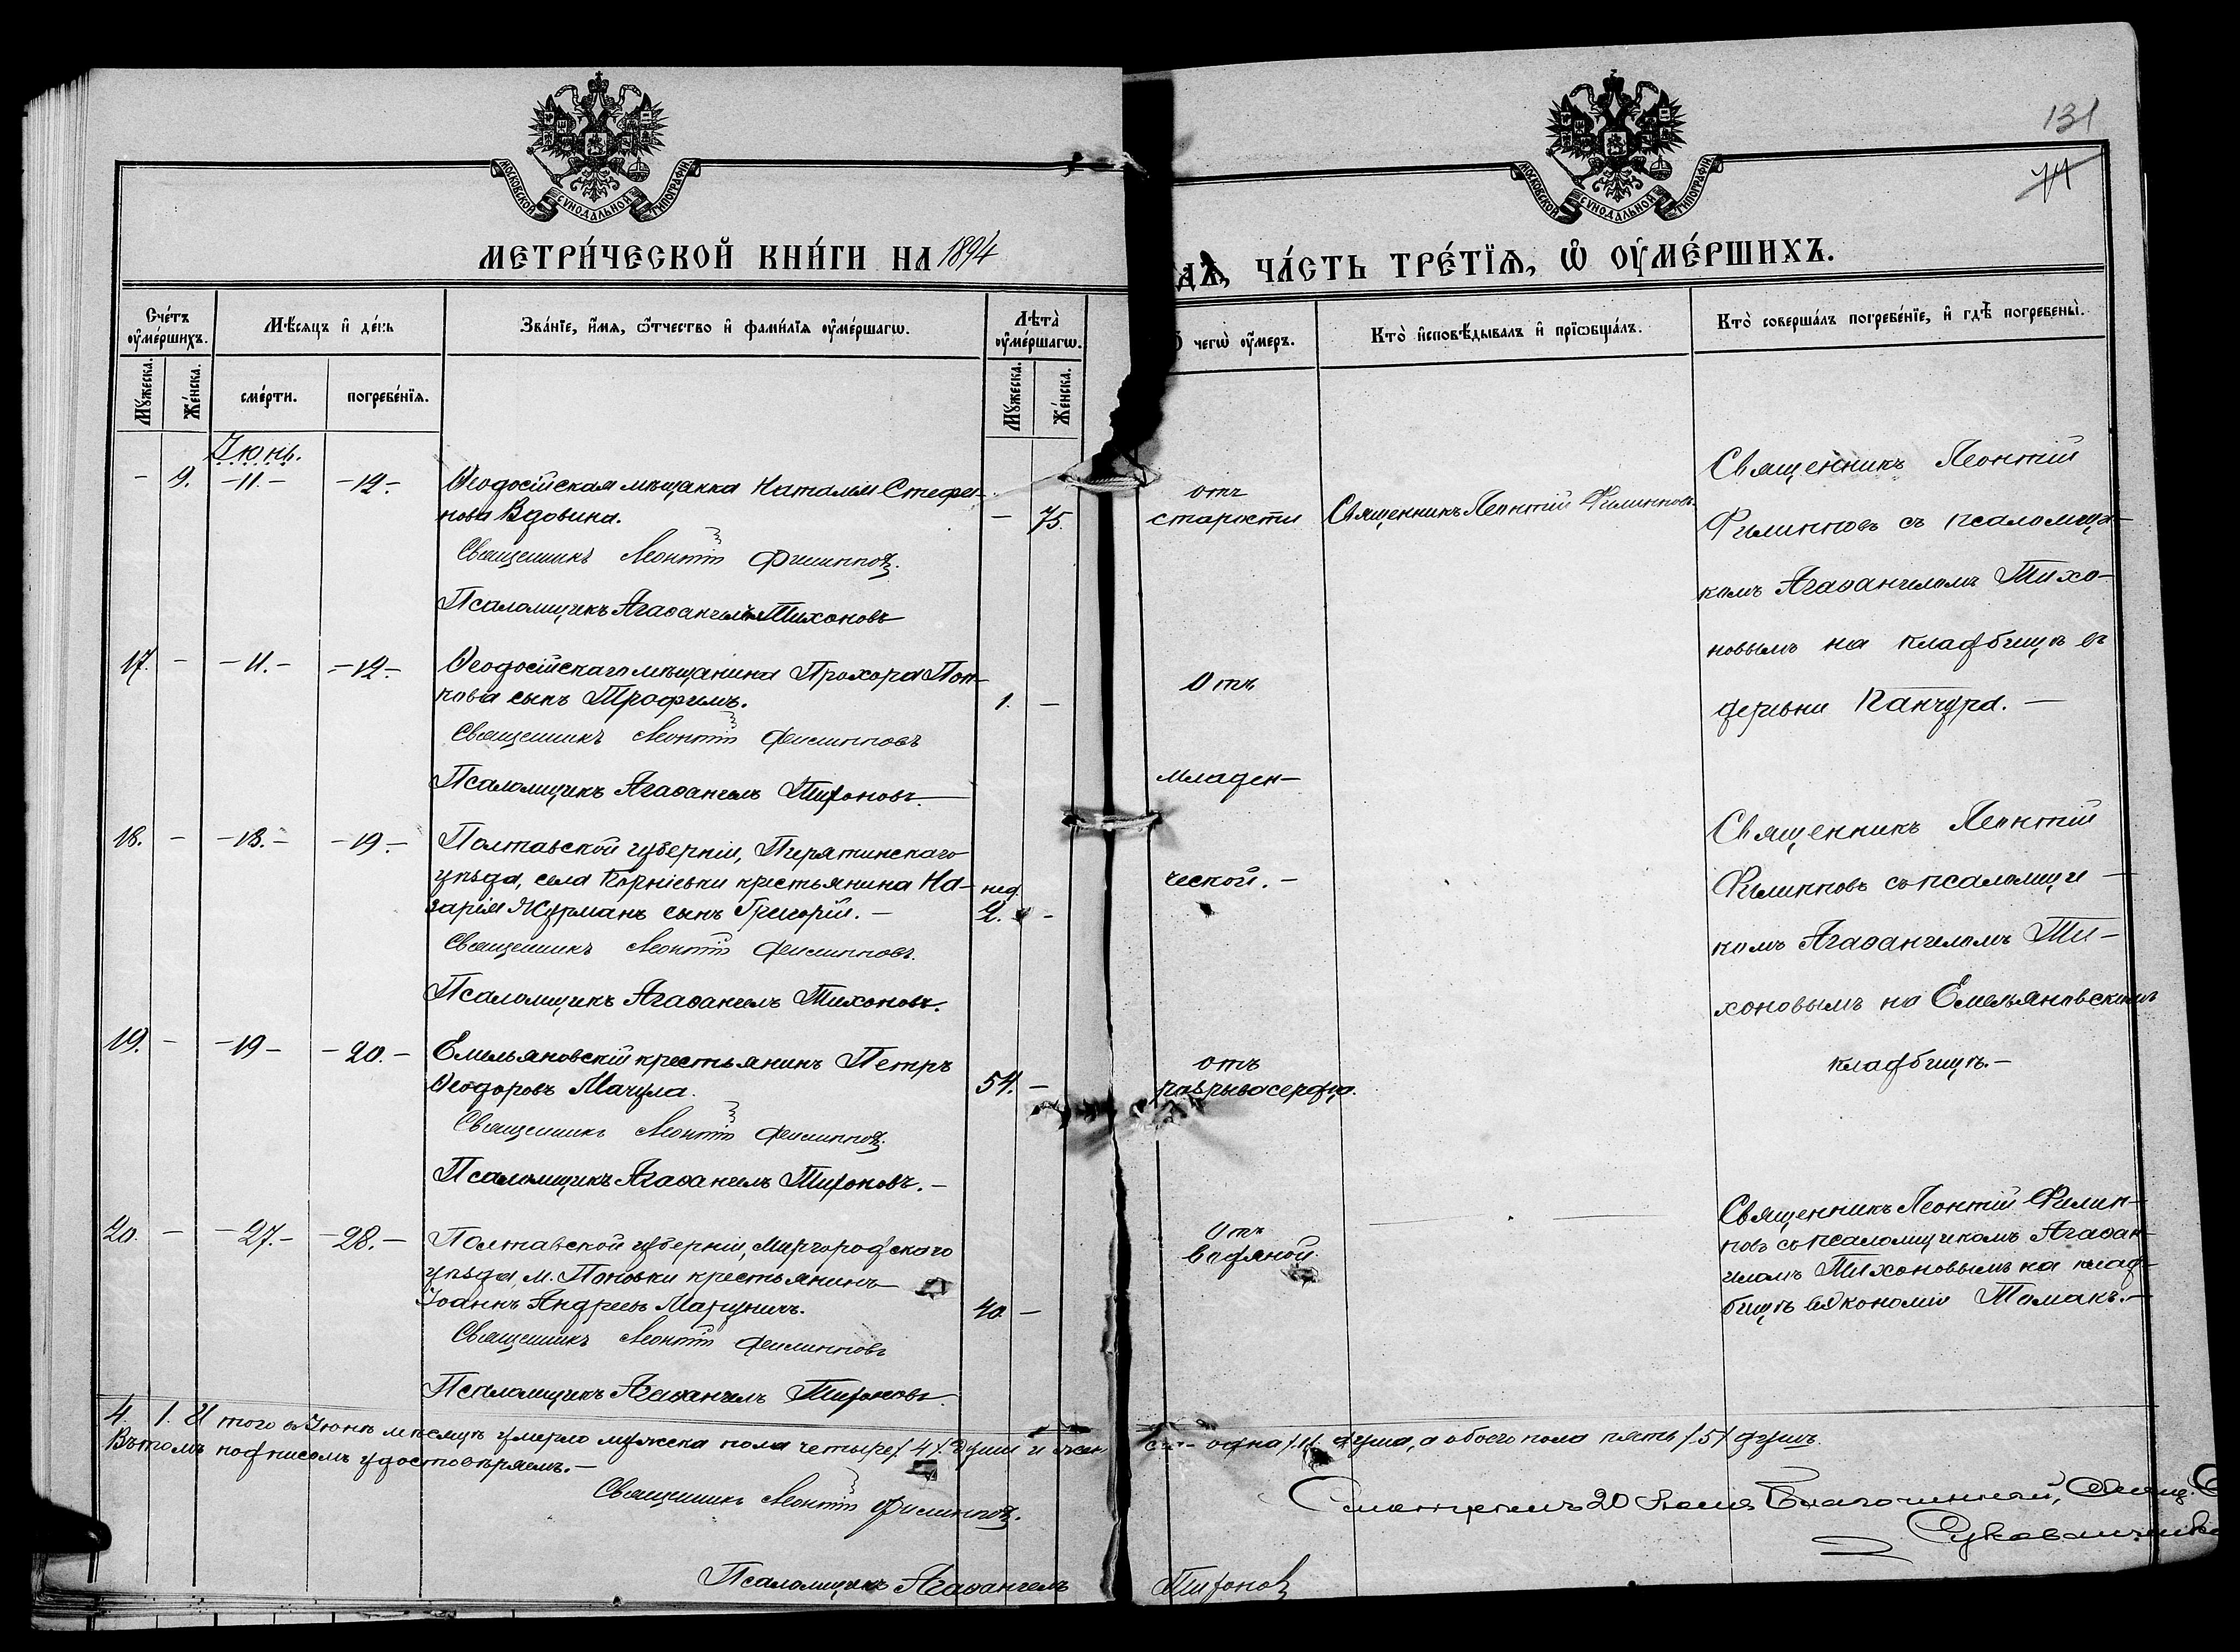 131
74
МОСКОВСКОЙ СѴНОДАЛЬНОЙ ТИПОГРАФІИ
МОСКОВСКОЙ СѴНОДАЛЬНОЙ ТИПОГРАФІИ
МЕТРИ́ЧЕСКОЙ КНИ́ГИ НА 1894
ДА̀, ЧА́СТЬ ТРЕ́ТЇѦ, Ѡ҆ ОУ҆МЕ́РШИХЪ.
Сче́тъ оу҆ме́ршихъ.
Мꙋ́жеска.
Же́нска.
Мѣ́сяцъ и҆ де́нь
сме́рти.
погребе́нїѧ.
Зва́нїе, и҆́мѧ, ѻ҆́тчество и҆ фами́лїѧ оу҆ме́ршагѡ.
Лѣта̀ оу҆ме́ршагѡ.
Мꙋ́жеска.
Же́нска.
чегѡ̀ оу҆́меръ.
Кто̀ и҆сповѣ́дывалъ и҆ прїѡбща́лъ.
Кто̀ соверша́лъ погребе́нїе, и҆ гдѣ̀ погребены̀.
Іюнь.
- 9. -11.- -12.- Ѳеодосійская мѣщанка Наталія Стефа-
нова Вдовина. - 75.
Священникъ Леонтій Филипповъ.
Псаломщикъ Агаѳангелъ Тихоновъ
отъ
старости
Священникъ Леонтій Филипповъ.
Священникъ Леонтій
Филипповъ съ псаломщи-
комъ Агаѳангеломъ Тихо-
новымъ на кладбищѣ въ
деревни Канчура.-
17. - -11.- -12.- Ѳеодосійскаго мѣщанина Прохора Поп-
кова сынъ Трофимъ. 1. -
Священникъ Леонтій Филипповъ
Псаломщикъ Агаѳангелъ Тихоновъ.
Отъ
младен-
ческой.-
18. - -18.- -19.- Полтавской губерніи, Пирятинскаго
уѣзда, села Корніевки крестьянина На-
зарія Журманъ сынъ Григорій.- нед. 2. -
Священникъ Леонтій Филипповъ.
Псаломщикъ Агаѳангелъ Тихоновъ.
Священникъ Леонтій
Филипповъ съ псаломщи-
комъ Агаѳангеломъ Ти-
хоновымъ на Емельяновскомъ
кладбищѣ.-
19. - -19- -20.- Емельяновскій крестьянинъ Петръ
Ѳеодоровъ Мачула. 54. -
Священникъ Леонтій Филипповъ.
Псаломщикъ Агаѳангелъ Тихоновъ.-
отъ
разрыва сердца.
20. - -27.- -28.- Полтавской губерніи, Миргородскаго
уѣзда, м. Поповки крестьянинъ
Іоаннъ Андреевъ Маруничъ. 40 -
Священникъ Леонтій Филипповъ
Псаломщикъ Агаѳангелъ Тихоновъ.
Отъ
водяной.
Священникъ Леонтій Филип-
повъ съ псаломщикомъ Агаѳан-
геломъ Тихоновымъ на клад-
бищѣ въ Экономіи Томакъ.-
4. 1. Итого въ Іюнѣ мѣсяцѣ умерло мужеска пола четыре /4/ души и жен
ска - одна /1/ душа, а обоего пола пять /5/ душъ.
Въ томъ подписомъ удостовѣряемъ.-
Священникъ Леонтій Филипповъ.
Псаломщикъ Агаѳангелъ Тихоновъ
Смотрѣлъ 20 Іюля Благочинный, Свящ.